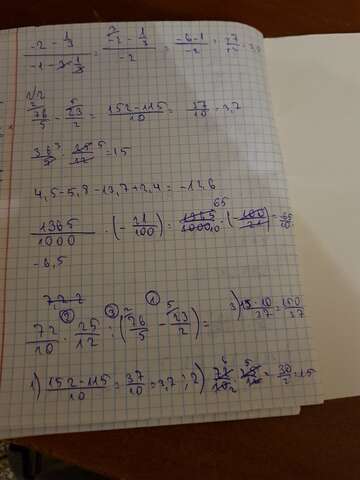 -2 - 1/3 / -1 - 3 · 1/3 = -2 - 1/3 / -2 = -6-1 / -2 =
76/5 - 23/2 = 152-115/10 = 37/10 = 3,7
36/5 · 25/12 = 15
4,5-5,8-13,7+2,4 = -12,6
1365/1000 : (- 21/100) = 1365/1000 · (- 100/21) = 65/10
-6,5
72/10 · 25/12 : (76/5 - 23/2) = 3) 15·10/37 = 150/37
1) 152-115/10 = 37/10 = 3,7 ; 2) 72/10 · 25/12 = 30/2 = 15